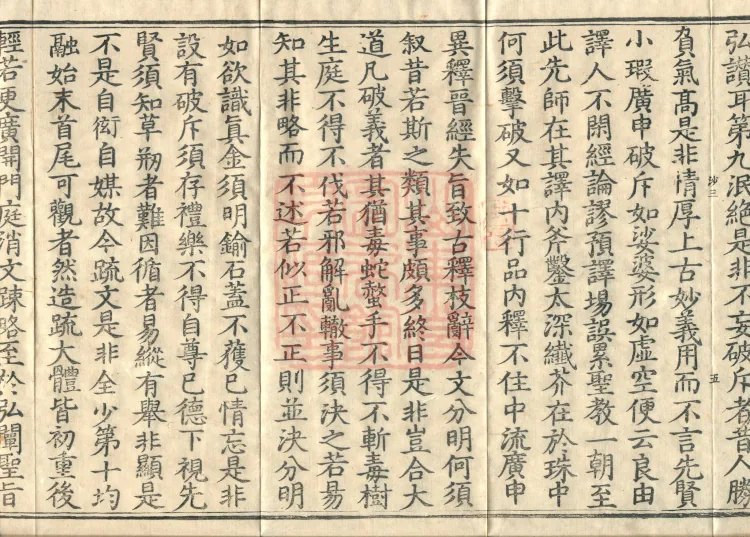 弘讚耳第九泯絶是非不妄破斥者昔人勝
負氣髙是非情厚上古妙義用而不言先賢
小瑕廣申破斥如娑婆形如虛空便云良由
譯人不閑經論謬預譯場誤累聖教一朝至
此先師在其譯内斧鑿太深纖芥在於珠中
何須擊破又如十行品内釋不住中流廣申
沙三
五
異釋晉經失旨致古釋枝辭今文分明何須
叙昔若斯之類其事頗多終日是非豈合大
道凡破義者其猶毒蛇螫手不得不斬毒樹
生庭不得不伐若邪解亂轍事須決之若易
知其非略而不述若似正不正則並決分明
如欲識真金須明鍮石蓋不獲已情忘是非
設有破斥須存禮樂不得自尊已德下視先
賢須知草剏者難因循者易縱有舉非顯是
不是自衒自媒故今䟽文是非全少第十均
融始末首尾可觀者然造䟽大體皆初重後
輕若更廣開門庭消文踈略至於弘闡聖旨